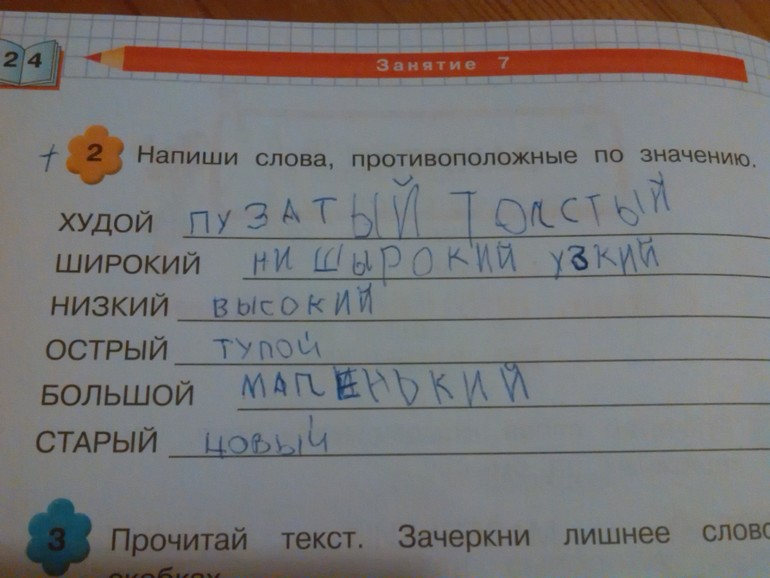 24
Занятие 7
+ 2 Напиши слова, противоположные по значению.
ХУДОЙ ПУЗАТЫЙ ТОЛСТЫЙ
ШИРОКИЙ НИ ШЫРОКИЙ УЗКИЙ
НИЗКИЙ ВЫСОКИЙ
ОСТРЫЙ ТУПОЙ
БОЛЬШОЙ МАЛЕНЬКИЙ
СТАРЫЙ НОВЫЙ
3 Прочитай текст. Зачеркни лишнее слово
скобках